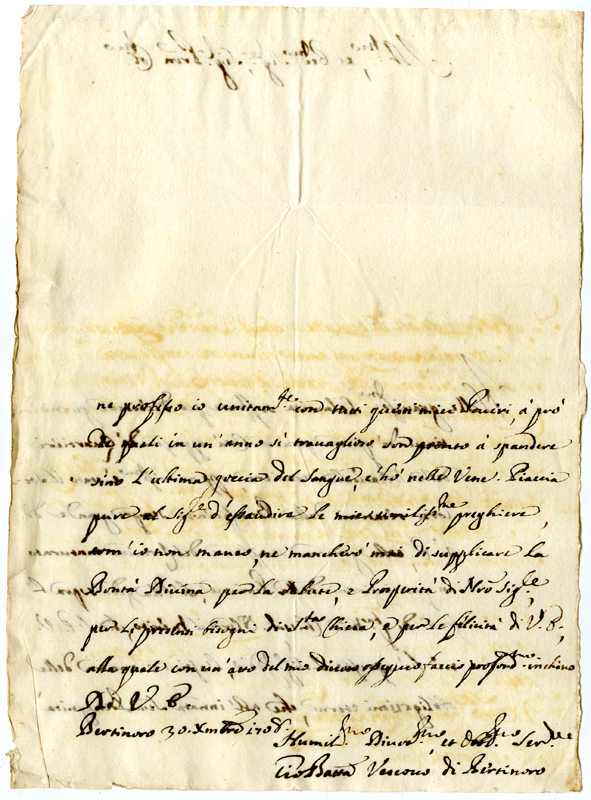 ne professo io unitam.te con tutti questi miei Poueri, à prò
de quali in un'anno sì trauaglioso son pronto à spandere
sino l'ultima goccia del sangue, c'hò nelle Vene. Piaccia
pure al Sig.re d'essaudire le mie humiliss.me preghiere,
com'io non manco, ne mancherò mai di supplicare la
Bontà Diuina, per la salute, e Prosperità di Nrõ Sig.re,
per li presenti bisogni di S.ta Chiesa, e per le felicità di V. B.,
alla quale con un'atto del mio diuoto ossequio faccio profond.mo inchino
Di V. B.
Bertinoro 30. Xmbre 1708.
Humil.mo Diuot.mo, et Obb.mo Ser.re
Gio Batta Vescouo di Bertinoro